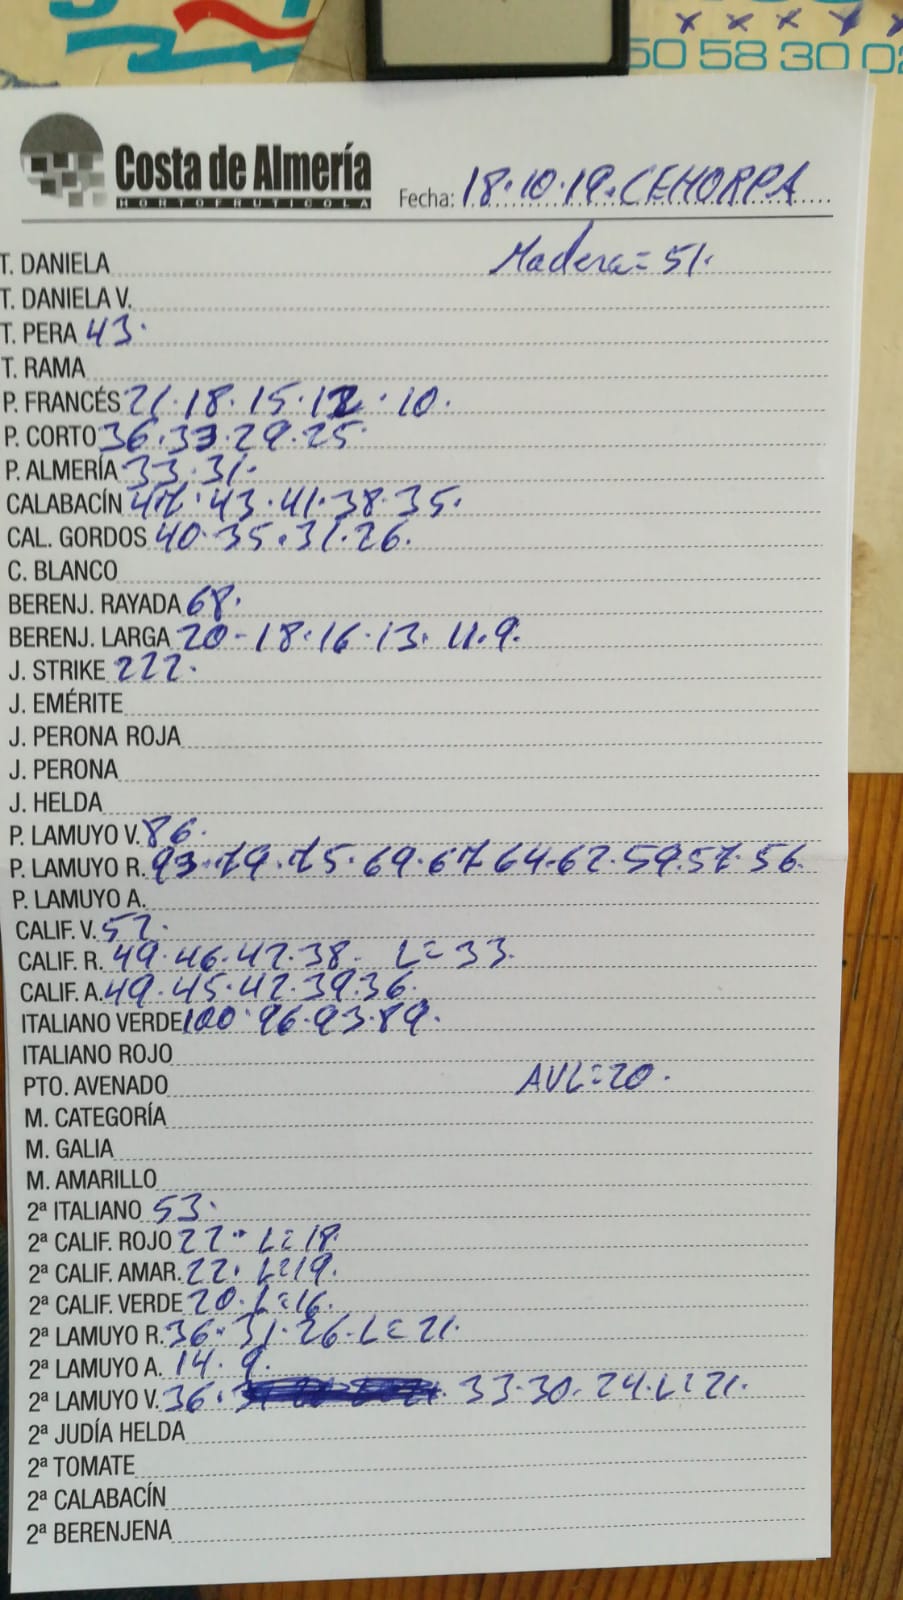 50 58 30 02
Costa de Almería
HORTOFRUTICOLA
Fecha: 18.10.19. CEHORPA
T. DANIELA Madera = 51.
T. DANIELA V.
T. PERA 43.
T. RAMA
P. FRANCÉS 21.18.15.12.10.
P. CORTO 36.33.29.25.
P. ALMERÍA 33.31.
CALABACÍN 47.43.41.38.35.
CAL. GORDOS 40.35.31.26.
C. BLANCO
BERENJ. RAYADA 68.
BERENJ. LARGA 20-18.16.13.11.9.
J. STRIKE 222.
J. EMÉRITE
J. PERONA ROJA
J. PERONA
J. HELDA
P. LAMUYO V. 86.
P. LAMUYO R. 93.79.75.69.67.64.62.59.57.56.
P. LAMUYO A.
CALIF. V. 52.
CALIF. R. 49.46.42.38. L=33.
CALIF. A. 49.45.42.39.36.
ITALIANO VERDE 100.96.93.89.
ITALIANO ROJO
PTO. AVENADO AVL=20.
M. CATEGORÍA
M. GALIA
M. AMARILLO
2ª ITALIANO 53.
2ª CALIF. ROJO 22. L=18.
2ª CALIF. AMAR. 22. L=19.
2ª CALIF. VERDE 20. L=16.
2ª LAMUYO R. 36.31.26. L=21.
2ª LAMUYO A. 14.9.
2ª LAMUYO V. 36. 33.30.24. L=21.
2ª JUDÍA HELDA
2ª TOMATE
2ª CALABACÍN
2ª BERENJENA